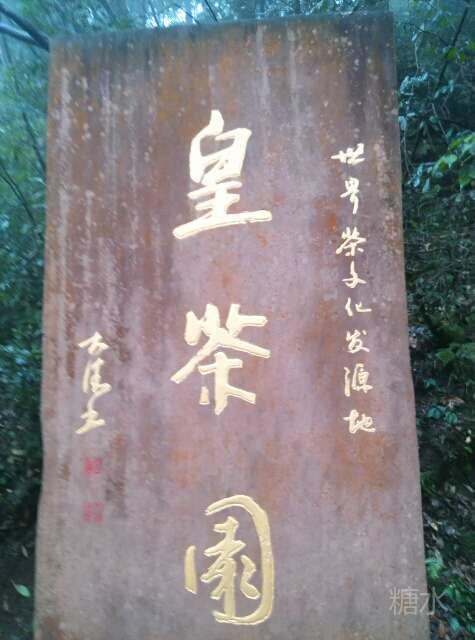 世界茶文化发源地
皇茶園
糖水